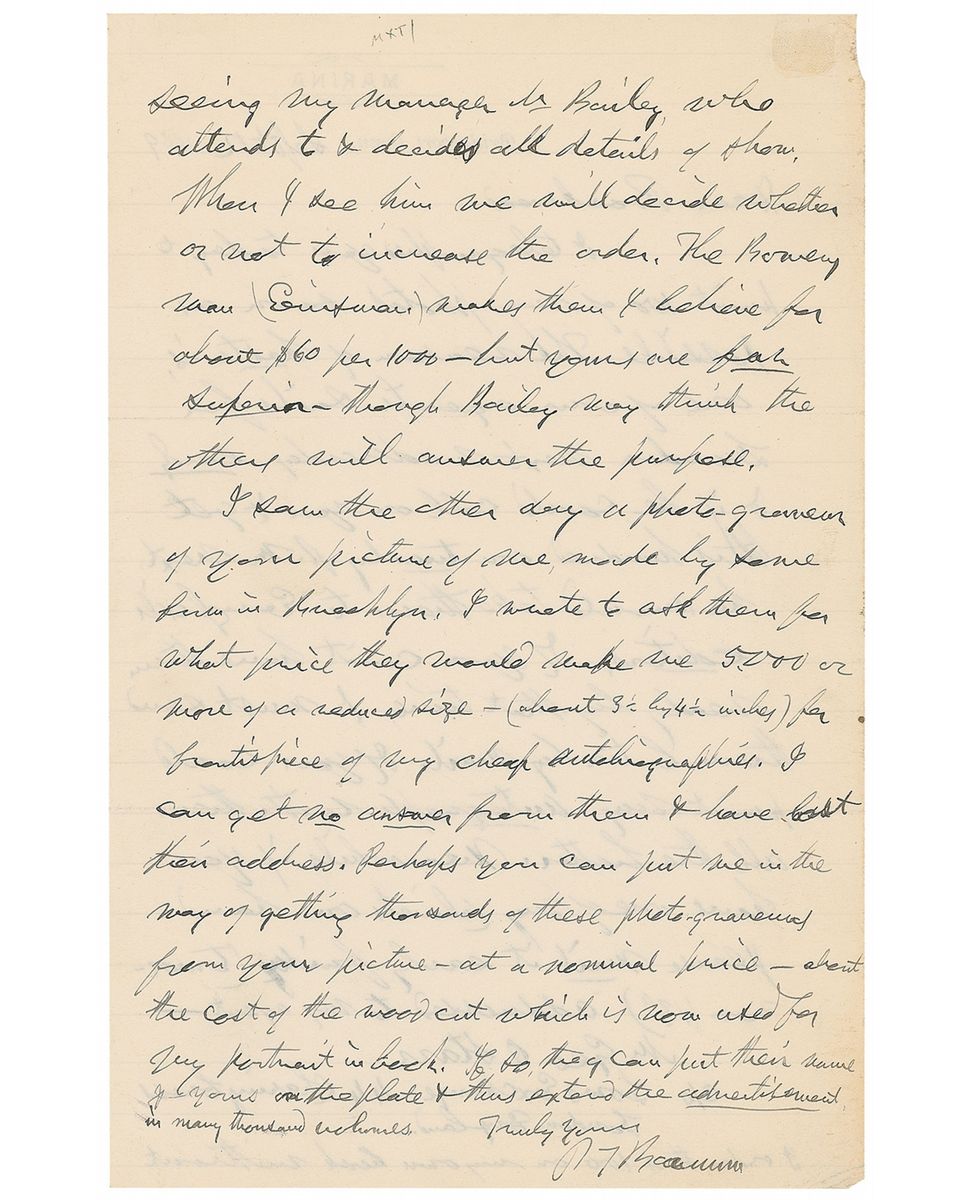 MXT/
seeing my manager Mr Bailey, who
attends to & decides all details of show.
When I see him we will decide whether
or not to increase the order. The Bowery
man (Eisnman) makes them I believe for
about $60 per 1000 — but yours are far
superior — though Bailey may think the
others will answer the purpose.
I saw the other day a photo-gravure
of your picture of me, made by some
firm in Brooklyn. I wrote to ask them for
what price they would make me 5000 or
more of a reduced size — (about 3½ by 4½ inches) for
frontispiece of my cheap autobiographies. I
can get no answer from them & have lost
their address. Perhaps you can put me in the
way of getting thousands of these photo-gravures
from your picture — at a nominal price — about
the cost of the wood cut which is now used for
my portrait in book. If so, they can put their name
& yours on the plate & thus extend the advertisement
in many thousand volumes. Truly Yours
P T Barnum